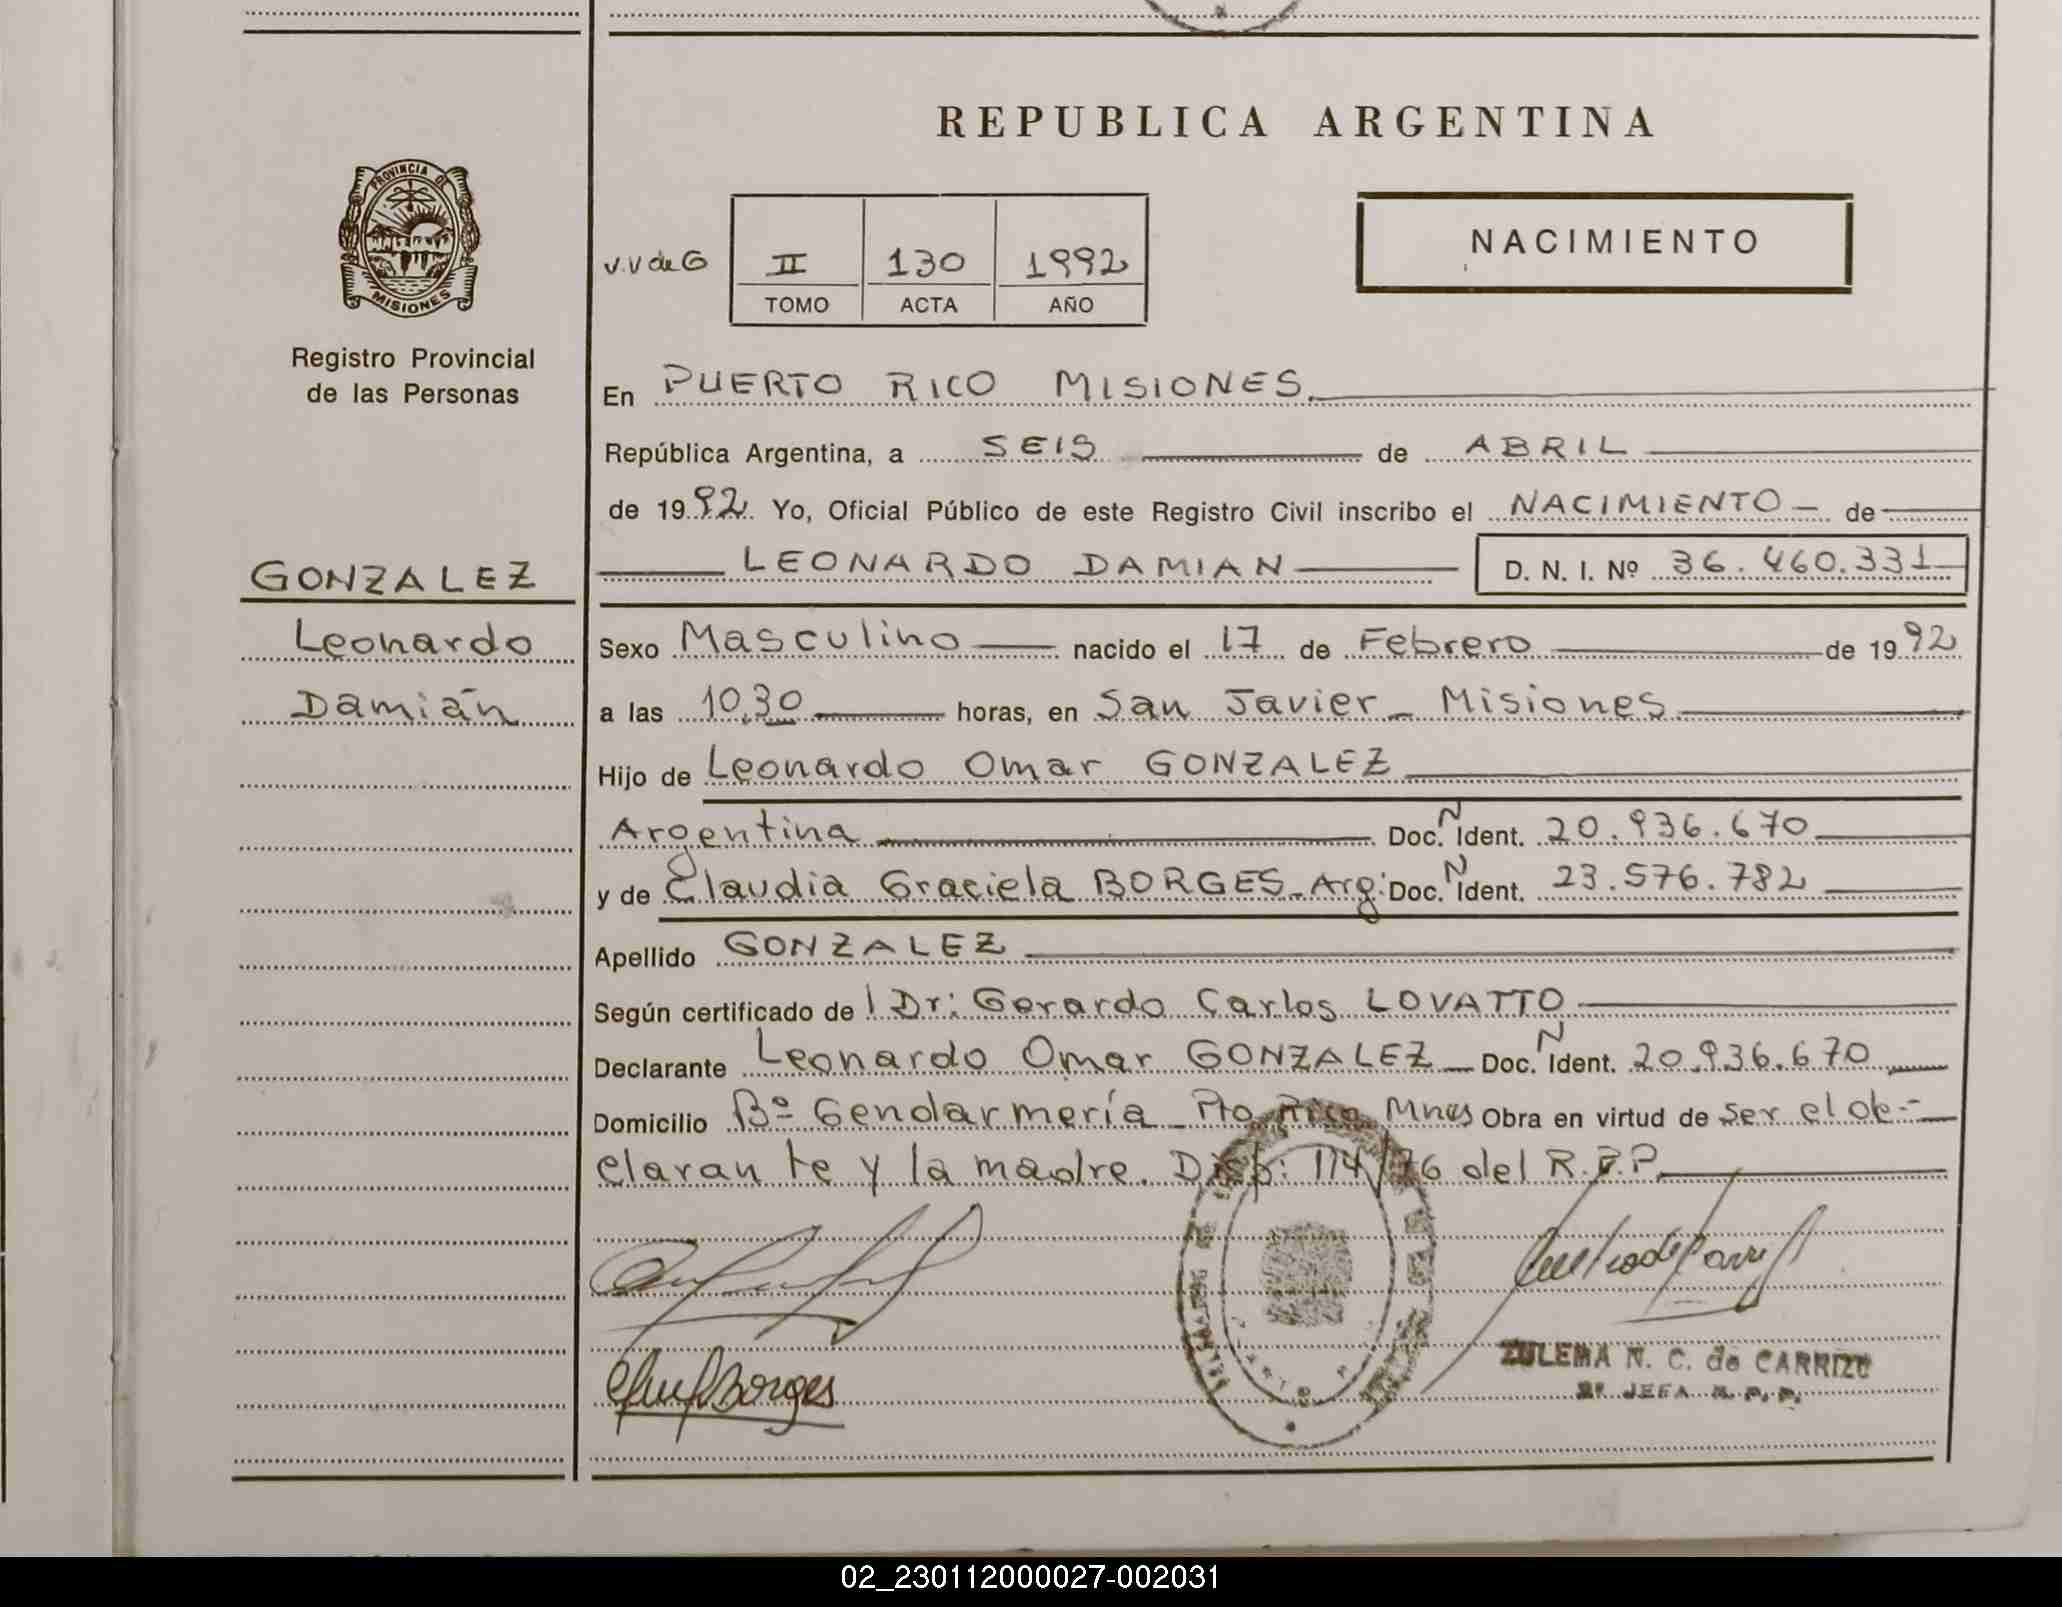 REPUBLICA ARGENTINA
PROVINCIA DE
MISIONES
Registro Provincial
de las Personas
NACIMIENTO
v.v de G II 130 1992
TOMO ACTA AÑO
En PUERTO RICO MISIONES.
República Argentina, a SEIS de ABRIL
de 1992 Yo, Oficial Público de este Registro Civil inscribo el NACIMIENTO - de
LEONARDO DAMIAN D. N. I. Nº 36.460.331
GONZALEZ
Leonardo
Damián
Sexo Masculino nacido el 17 de Febrero de 1992
a las 10,30 horas, en San Javier - Misiones
Hijo de Leonardo Omar GONZALEZ
Argentina Doc. N Ident. 20.936.670
y de Claudia Graciela BORGES - Arg: Doc. N Ident. 23.576.782
Apellido GONZALEZ
Según certificado de l Dr: Gerardo Carlos LOVATTO
Declarante Leonardo Omar GONZALEZ Doc. N Ident. 20.936.670
Domicilio Bº Gendarmería - Pto Rico Mnes Obra en virtud de ser el de-
clarante y la madre. Disp: 114/76 del R.P.P.
Borges
ZULEMA N. C. de CARRIZO
2ª JEFA R. P. P.
02_230112000027-002031